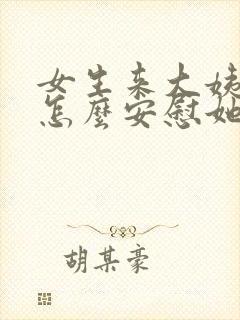 女生来大姨
怎麼安慰她
胡某豪